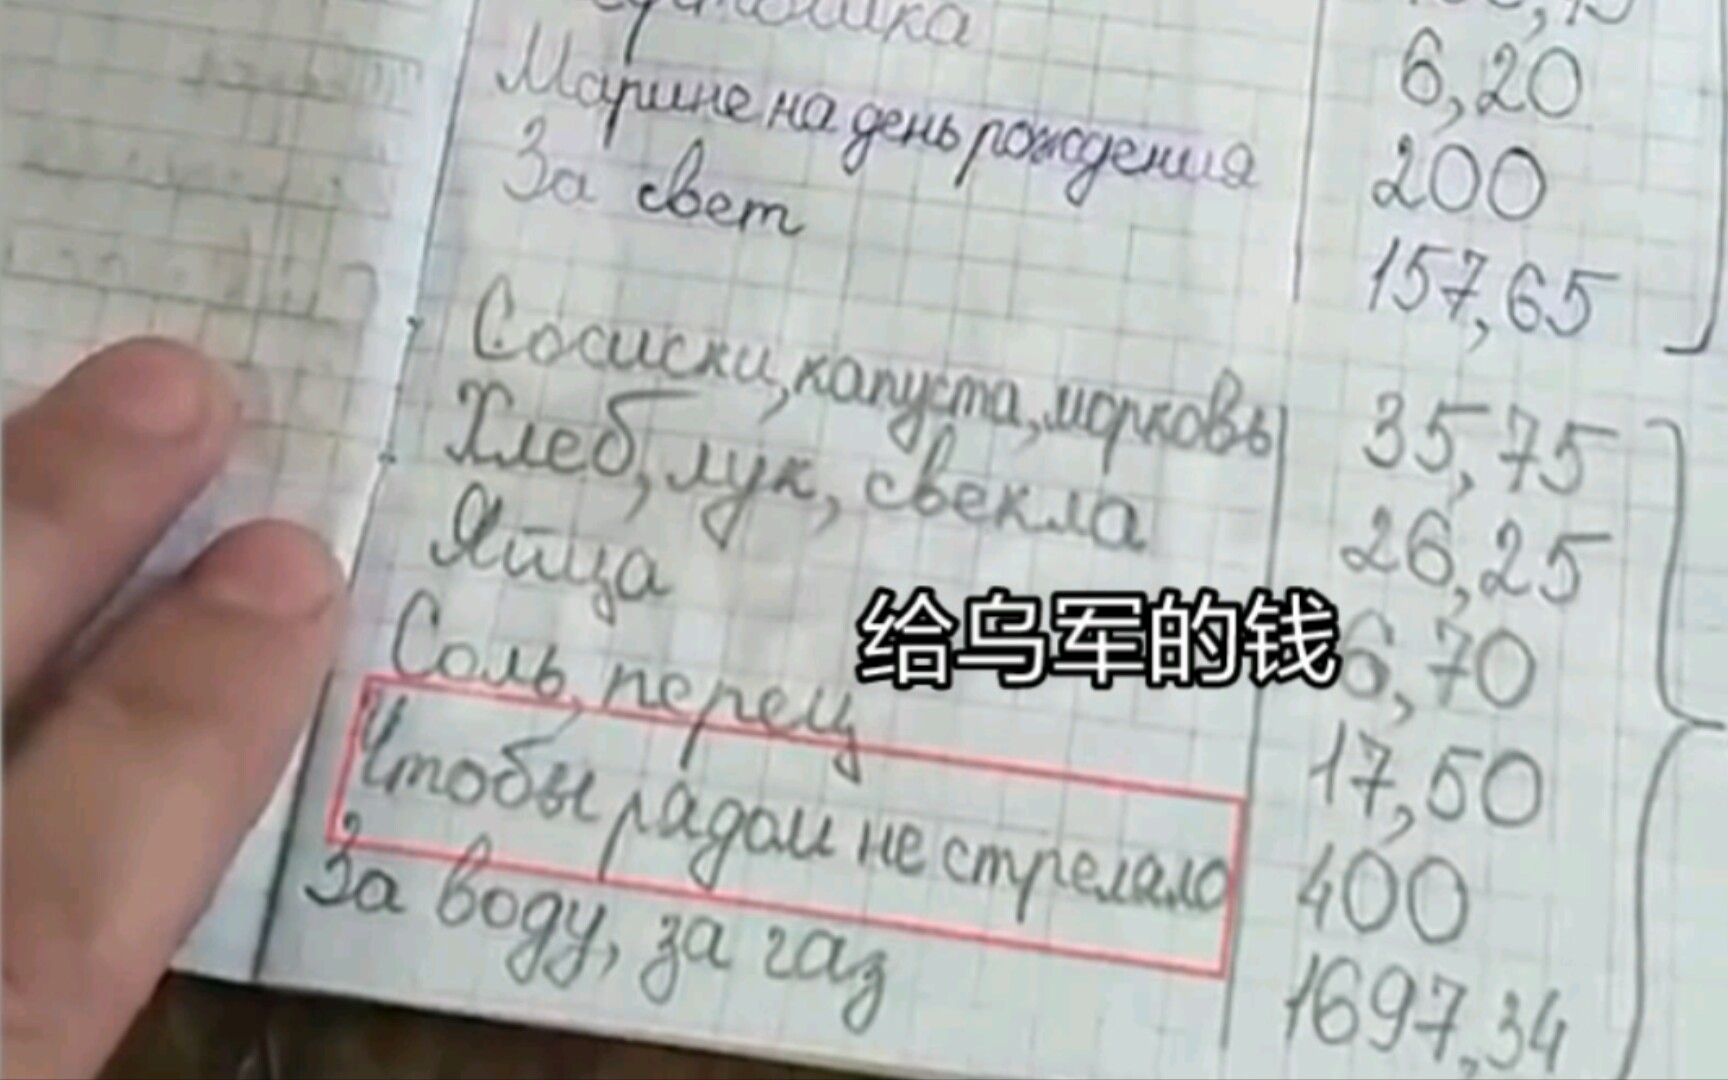 6,20
Марине на день рождения 200
За свет 157,65
Сосиски, капуста, морковь 35,75
Хлеб, лук, свекла 26,25
Яйца 6,70
给乌军的钱
Соль, перец 17,50
Чтобы рядом не стреляло 400
За воду, за газ 1697,34